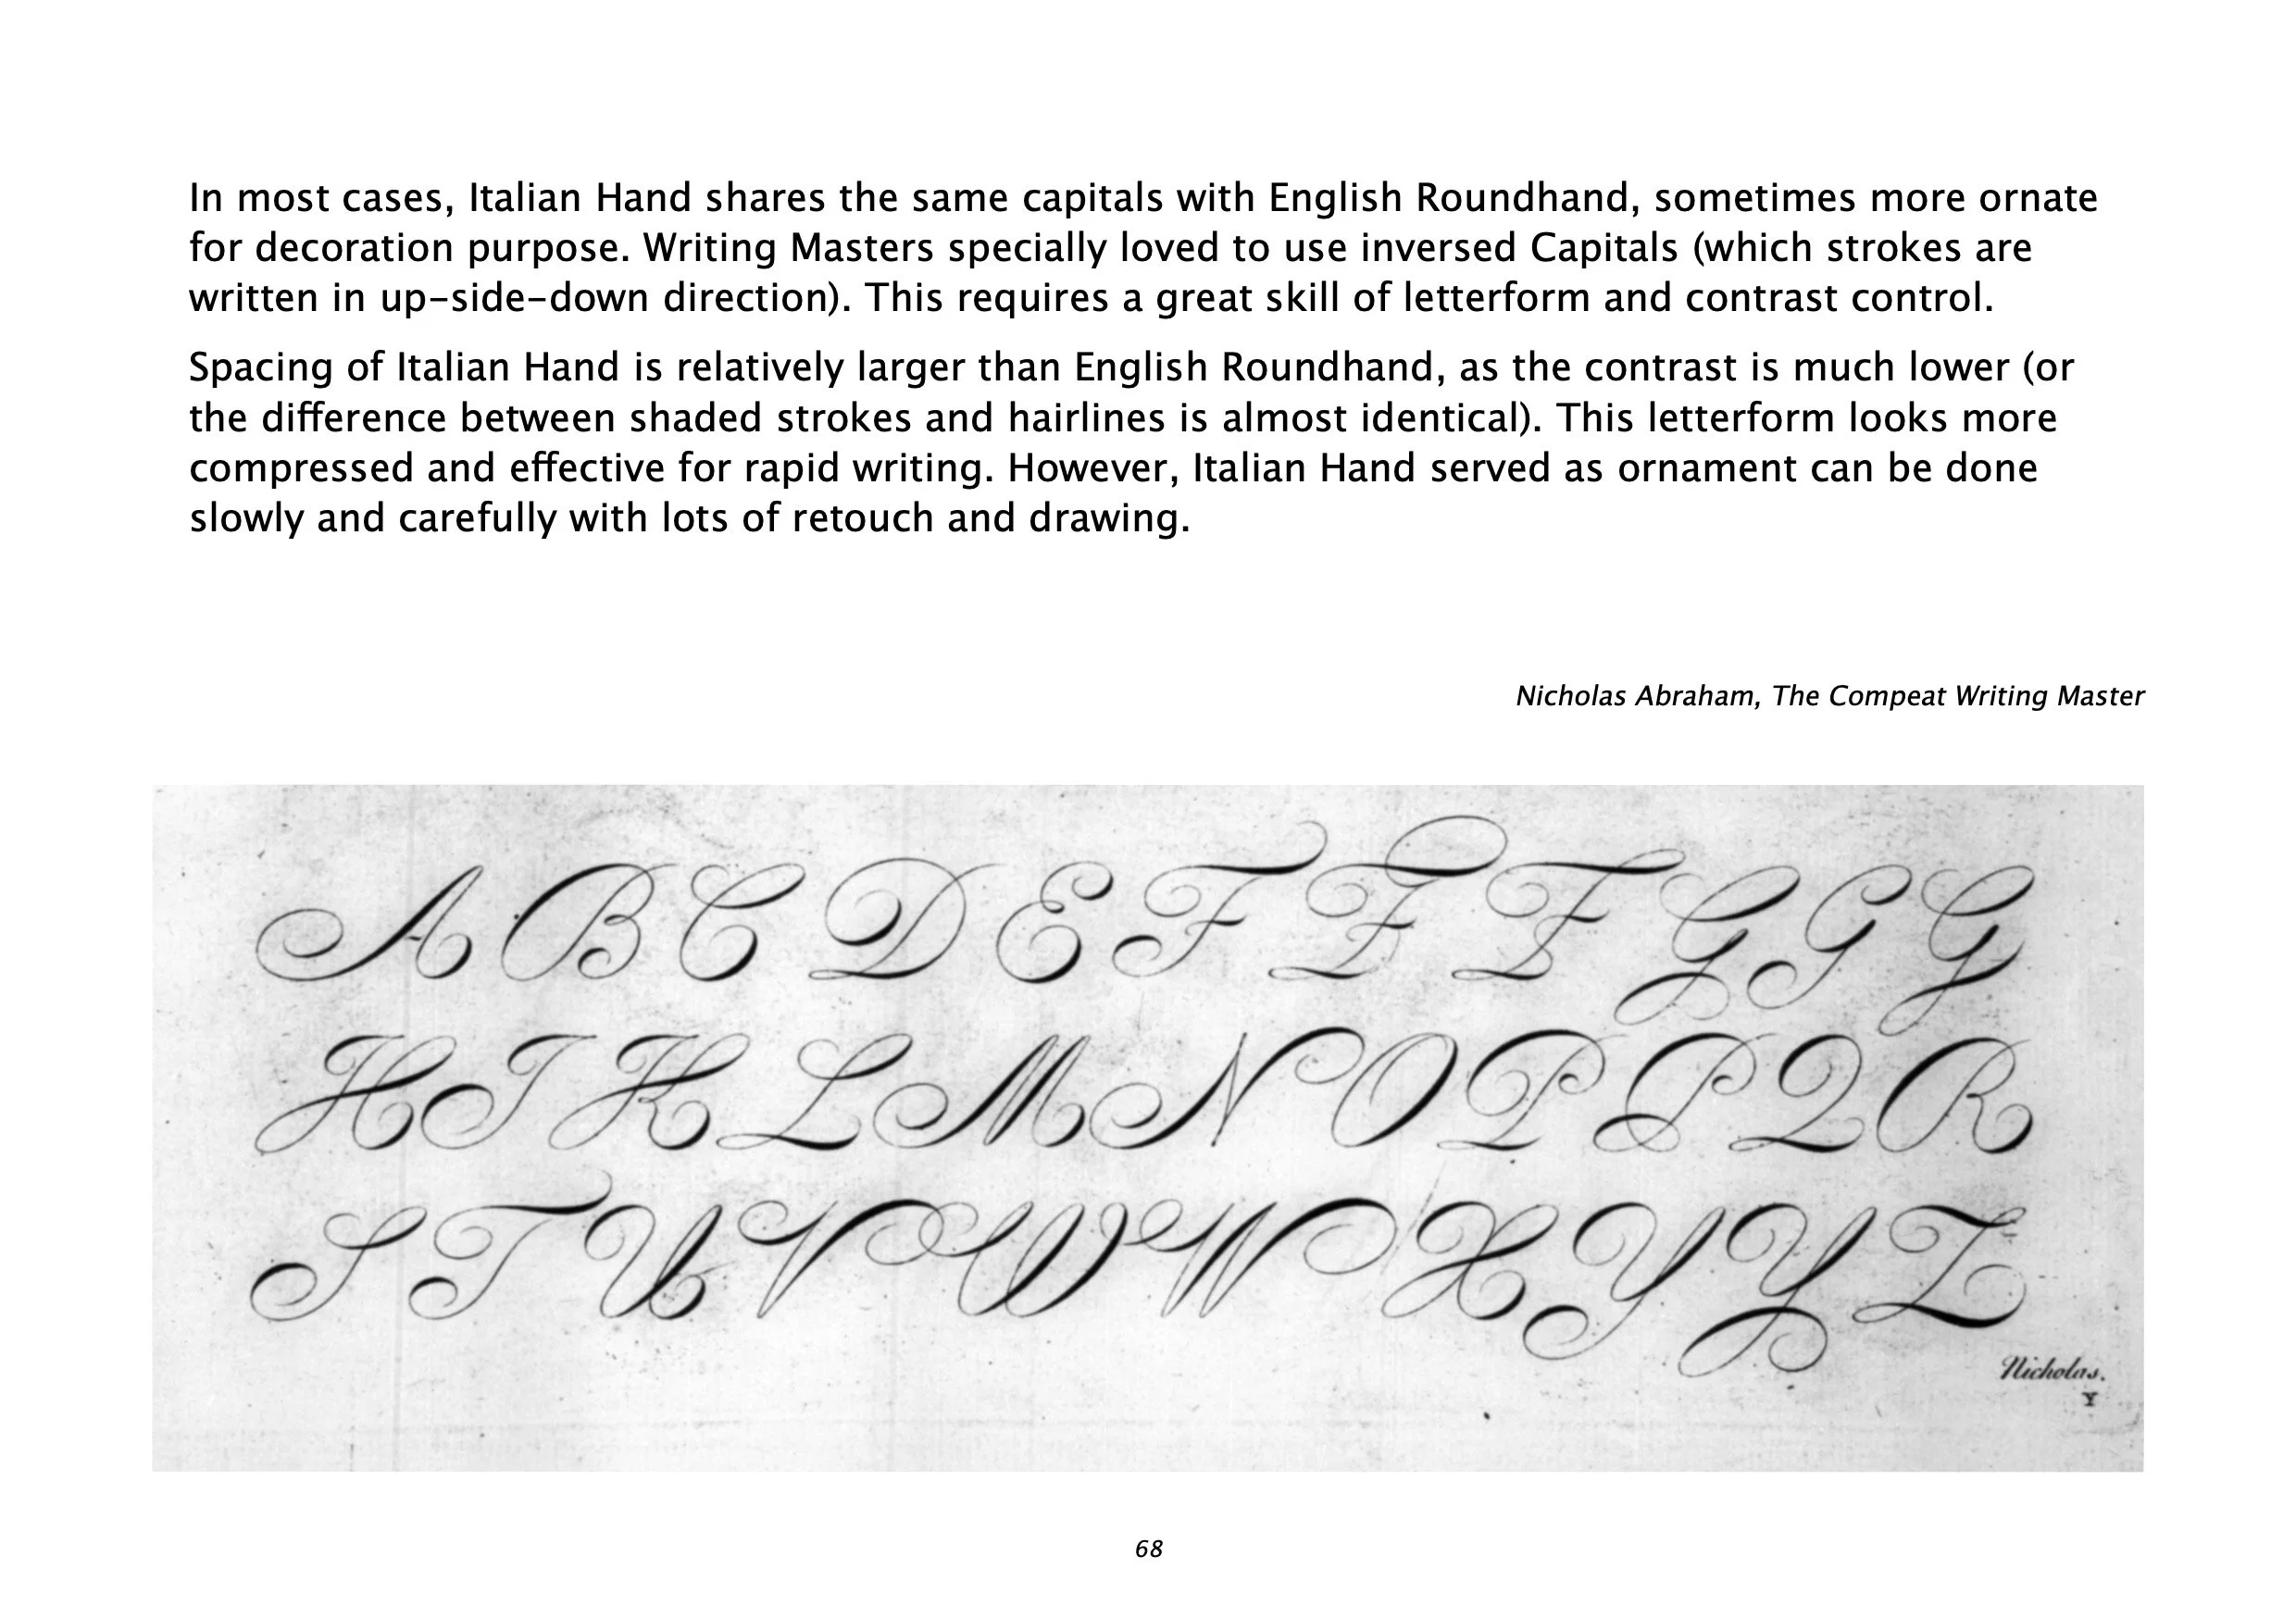 In most cases, Italian Hand shares the same capitals with English Roundhand, sometimes more ornate
for decoration purpose. Writing Masters specially loved to use inversed Capitals (which strokes are
written in up-side-down direction). This requires a great skill of letterform and contrast control.
Spacing of Italian Hand is relatively larger than English Roundhand, as the contrast is much lower (or
the difference between shaded strokes and hairlines is almost identical). This letterform looks more
compressed and effective for rapid writing. However, Italian Hand served as ornament can be done
slowly and carefully with lots of retouch and drawing.
Nicholas Abraham, The Compeat Writing Master
A B C D E F F F G G G
H I K L M N O P P Q R
S T U V W W X Y Y Z
Nicholas.
Y
68